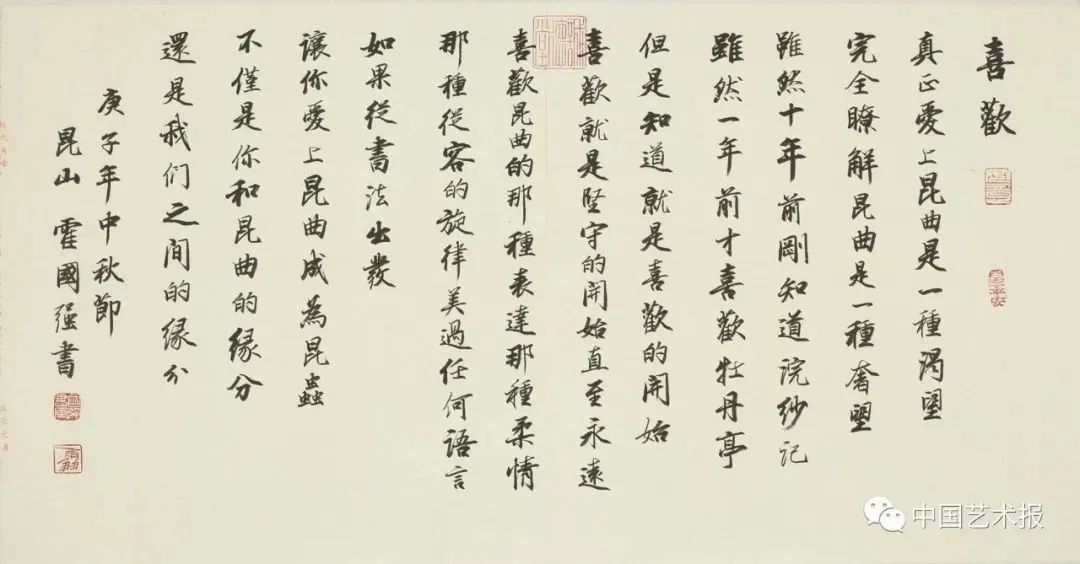 喜歡
真正愛上昆曲是一種渴望
完全瞭解昆曲是一種奢望
雖然十年前剛知道浣紗記
雖然一年前才喜歡牡丹亭
但是知道就是喜歡的開始
喜歡就是堅守的開始直至永遠
喜歡昆曲的那種表達那種柔情
那種從容的旋律美過任何語言
如果從書法出發
讓你愛上昆曲成為昆蟲
不僅是你和昆曲的緣分
還是我们之間的緣分
庚子年中秋節
昆山 霍國强書
中国艺术报